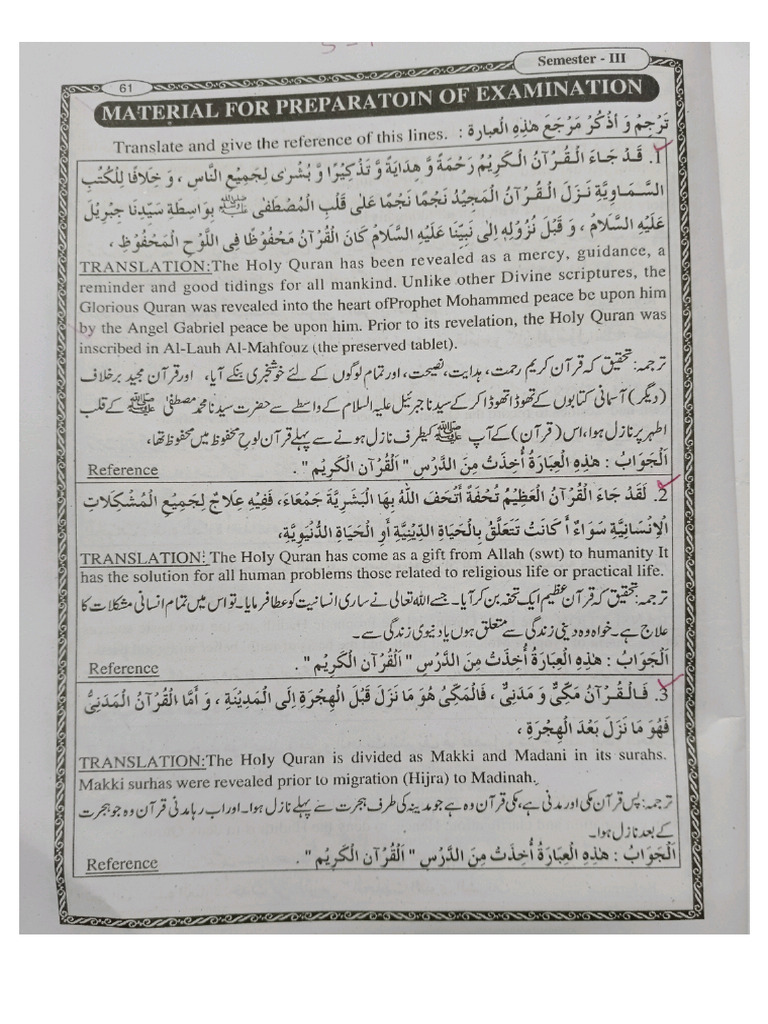 Semester - III
61
MATERIAL FOR PREPARATOIN OF EXAMINATION
Translate and give the reference of this lines. : تَرْجِمْ وَ اُذْكُرْ مَرْجَعَ هٰذِهِ الْعِبارة
1. قَدْ جَاءَ الْقُرْآنُ الْكَرِيْمُ رَحْمَةً وَّ هِدَايَةً وَّ تَذْكِيْرًا وَّ بُشْرٰى لِجَمِيْعِ النَّاسِ ، وَ خِلَافًا لِلْكُتُبِ
السَّمَاوِيَّةِ نَزَلَ الْقُرْآنُ الْمَجِيْدُ نَجْمًا نَجْمًا عَلٰى قَلْبِ الْمُصْطَفٰى ﷺ بِوَاسِطَةِ سَيِّدِنَا جِبْرِيْلَ
عَلَيْهِ السَّلَامُ ، وَ قَبْلَ نُزُوْلِهِ اِلٰى نَبِيِّنَا عَلَيْهِ السَّلَامُ كَانَ الْقُرْآنُ مَحْفُوْظًا فِى اللَّوْحِ الْمَحْفُوْظِ ،
TRANSLATION:The Holy Quran has been revealed as a mercy, guidance, a
reminder and good tidings for all mankind. Unlike other Divine scriptures, the
Glorious Quran was revealed into the heart ofProphet Mohammed peace be upon him
by the Angel Gabriel peace be upon him. Prior to its revelation, the Holy Quran was
inscribed in Al-Lauh Al-Mahfouz (the preserved tablet).
ترجمہ: تحقیق کہ قرآن کریم رحمت، ہدایت، نصیحت، اور تمام لوگوں کے لئے خوشخبری بنکے آیا، اور قرآن مجید برخلاف
(دیگر) آسمانی کتابوں کے تھوڑا تھوڑا کر کے سیدنا جبرئیل علیہ السلام کے واسطے سے حضرت سیدنا محمد مصطفیٰ ﷺ کے قلب
اطہر پر نازل ہوا، اس (قرآن) کے آپ ﷺ کیطرف نازل ہونے سے پہلے قرآن لوح محفوظ میں محفوظ تھا،
Reference اَلْجَوَابُ : هٰذِهِ الْعِبَارَةُ أُخِذَتْ مِنَ الدَّرْسِ " اَلْقُرْآنِ الْكَرِيْمِ " .
2. لَقَدْ جَاءَ الْقُرْآنُ الْعَظِيْمُ تُحْفَةً أَتْحَفَ اللّٰهُ بِهَا الْبَشَرِيَّةَ جَمْعَاءَ، فَفِيْهِ عِلَاجٌ لِجَمِيْعِ الْمُشْكِلَاتِ
الْاِنْسَانِيَّةِ سَوَاءٌ أَ كَانَتْ تَتَعَلَّقُ بِالْحَيَاةِ الدِّيْنِيَّةِ أَوِ الْحَيَاةِ الدُّنْيَوِيَّةِ،
TRANSLATION: The Holy Quran has come as a gift from Allah (swt) to humanity It
has the solution for all human problems those related to religious life or practical life.
ترجمہ: تحقیق کہ قرآن عظیم ایک تحفہ بن کر آیا۔ جسے اللہ تعالی نے ساری انسانیت کو عطا فرمایا۔ تو اس میں تمام انسانی مشکلات کا
علاج ہے۔ خواہ وہ دینی زندگی سے متعلق ہوں یا دنیوی زندگی سے۔
Reference اَلْجَوَابُ : هٰذِهِ الْعِبَارَةُ أُخِذَتْ مِنَ الدَّرْسِ " اَلْقُرْآنِ الْكَرِيْمِ " .
3. فَالْقُرْآنُ مَكِّىٌّ وَ مَدَنِىٌّ ، فَالْمَكِّىُّ هُوَ مَا نَزَلَ قَبْلَ الْهِجْرَةِ اِلَى الْمَدِيْنَةِ ، وَ أَمَّا الْقُرْآنُ الْمَدَنِىُّ
فَهُوَ مَا نَزَلَ بَعْدَ الْهِجْرَةِ ،
TRANSLATION:The Holy Quran is divided as Makki and Madani in its surahs.
Makki surhas were revealed prior to migration (Hijra) to Madinah.
ترجمہ: پس قرآن مکی اور مدنی ہے، مکی قرآن وہ ہے جو مدینہ کی طرف ہجرت سے پہلے نازل ہوا۔ اور اب رہا مدنی قرآن وہ جو ہجرت
کے بعد نازل ہوا۔
Reference اَلْجَوَابُ : هٰذِهِ الْعِبَارَةُ أُخِذَتْ مِنَ الدَّرْسِ " اَلْقُرْآنِ الْكَرِيْمِ " .